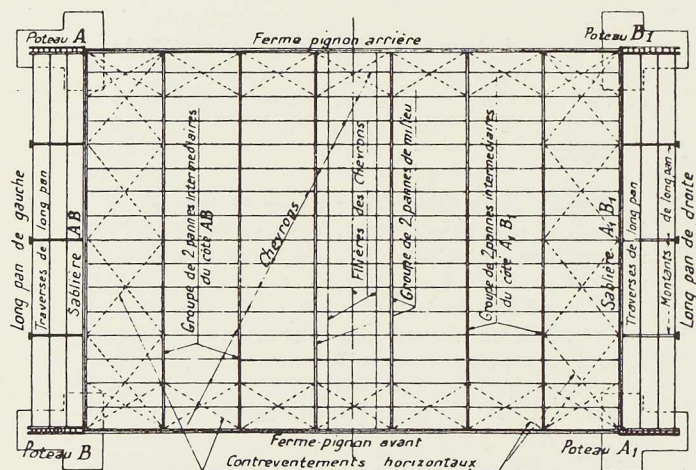 Poteau A
Ferme pignon arrière
Poteau B1
Long pan de gauche
Traverses de long pan
Sablière AB
Groupe de 2 pannes intermediaires
du côté AB
Chevrons
Filières des Chevrons
Groupe de 2 pannes de milieu
Groupe de 2 pannes intermediaires
du côté A1 B1
Sablière A1 B1
Traverses de long pan
Montants de long pan
Long pan de droite
Poteau B
Ferme-pignon avant
Poteau A1
Contreventements horizontaux